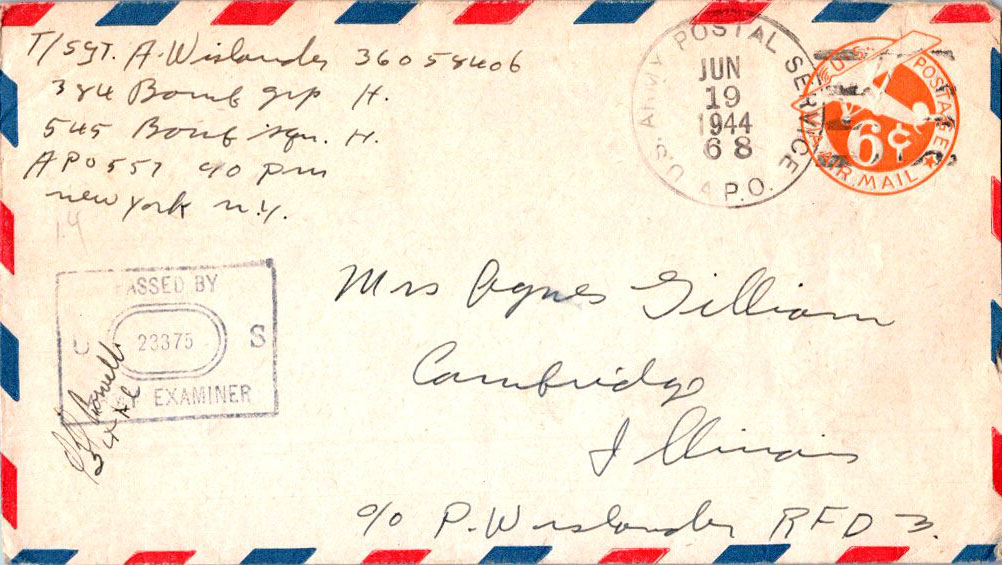 T/Sgt. A. Wislander 36058406
384 Bomb grp H.
545 Bomb squ. H.
APO 557 c/o pm
new york n.y.
14
U.S. ARMY POSTAL SERVICE
JUN
19
1944
68
A.P.O.
U.S. POSTAGE
6¢
AIR MAIL
ASSED BY
U 23375 S
Y EXAMINER
Mrs Agnes Gilliam
Cambridge
Illinois
c/o P. Wislander RFD 3.